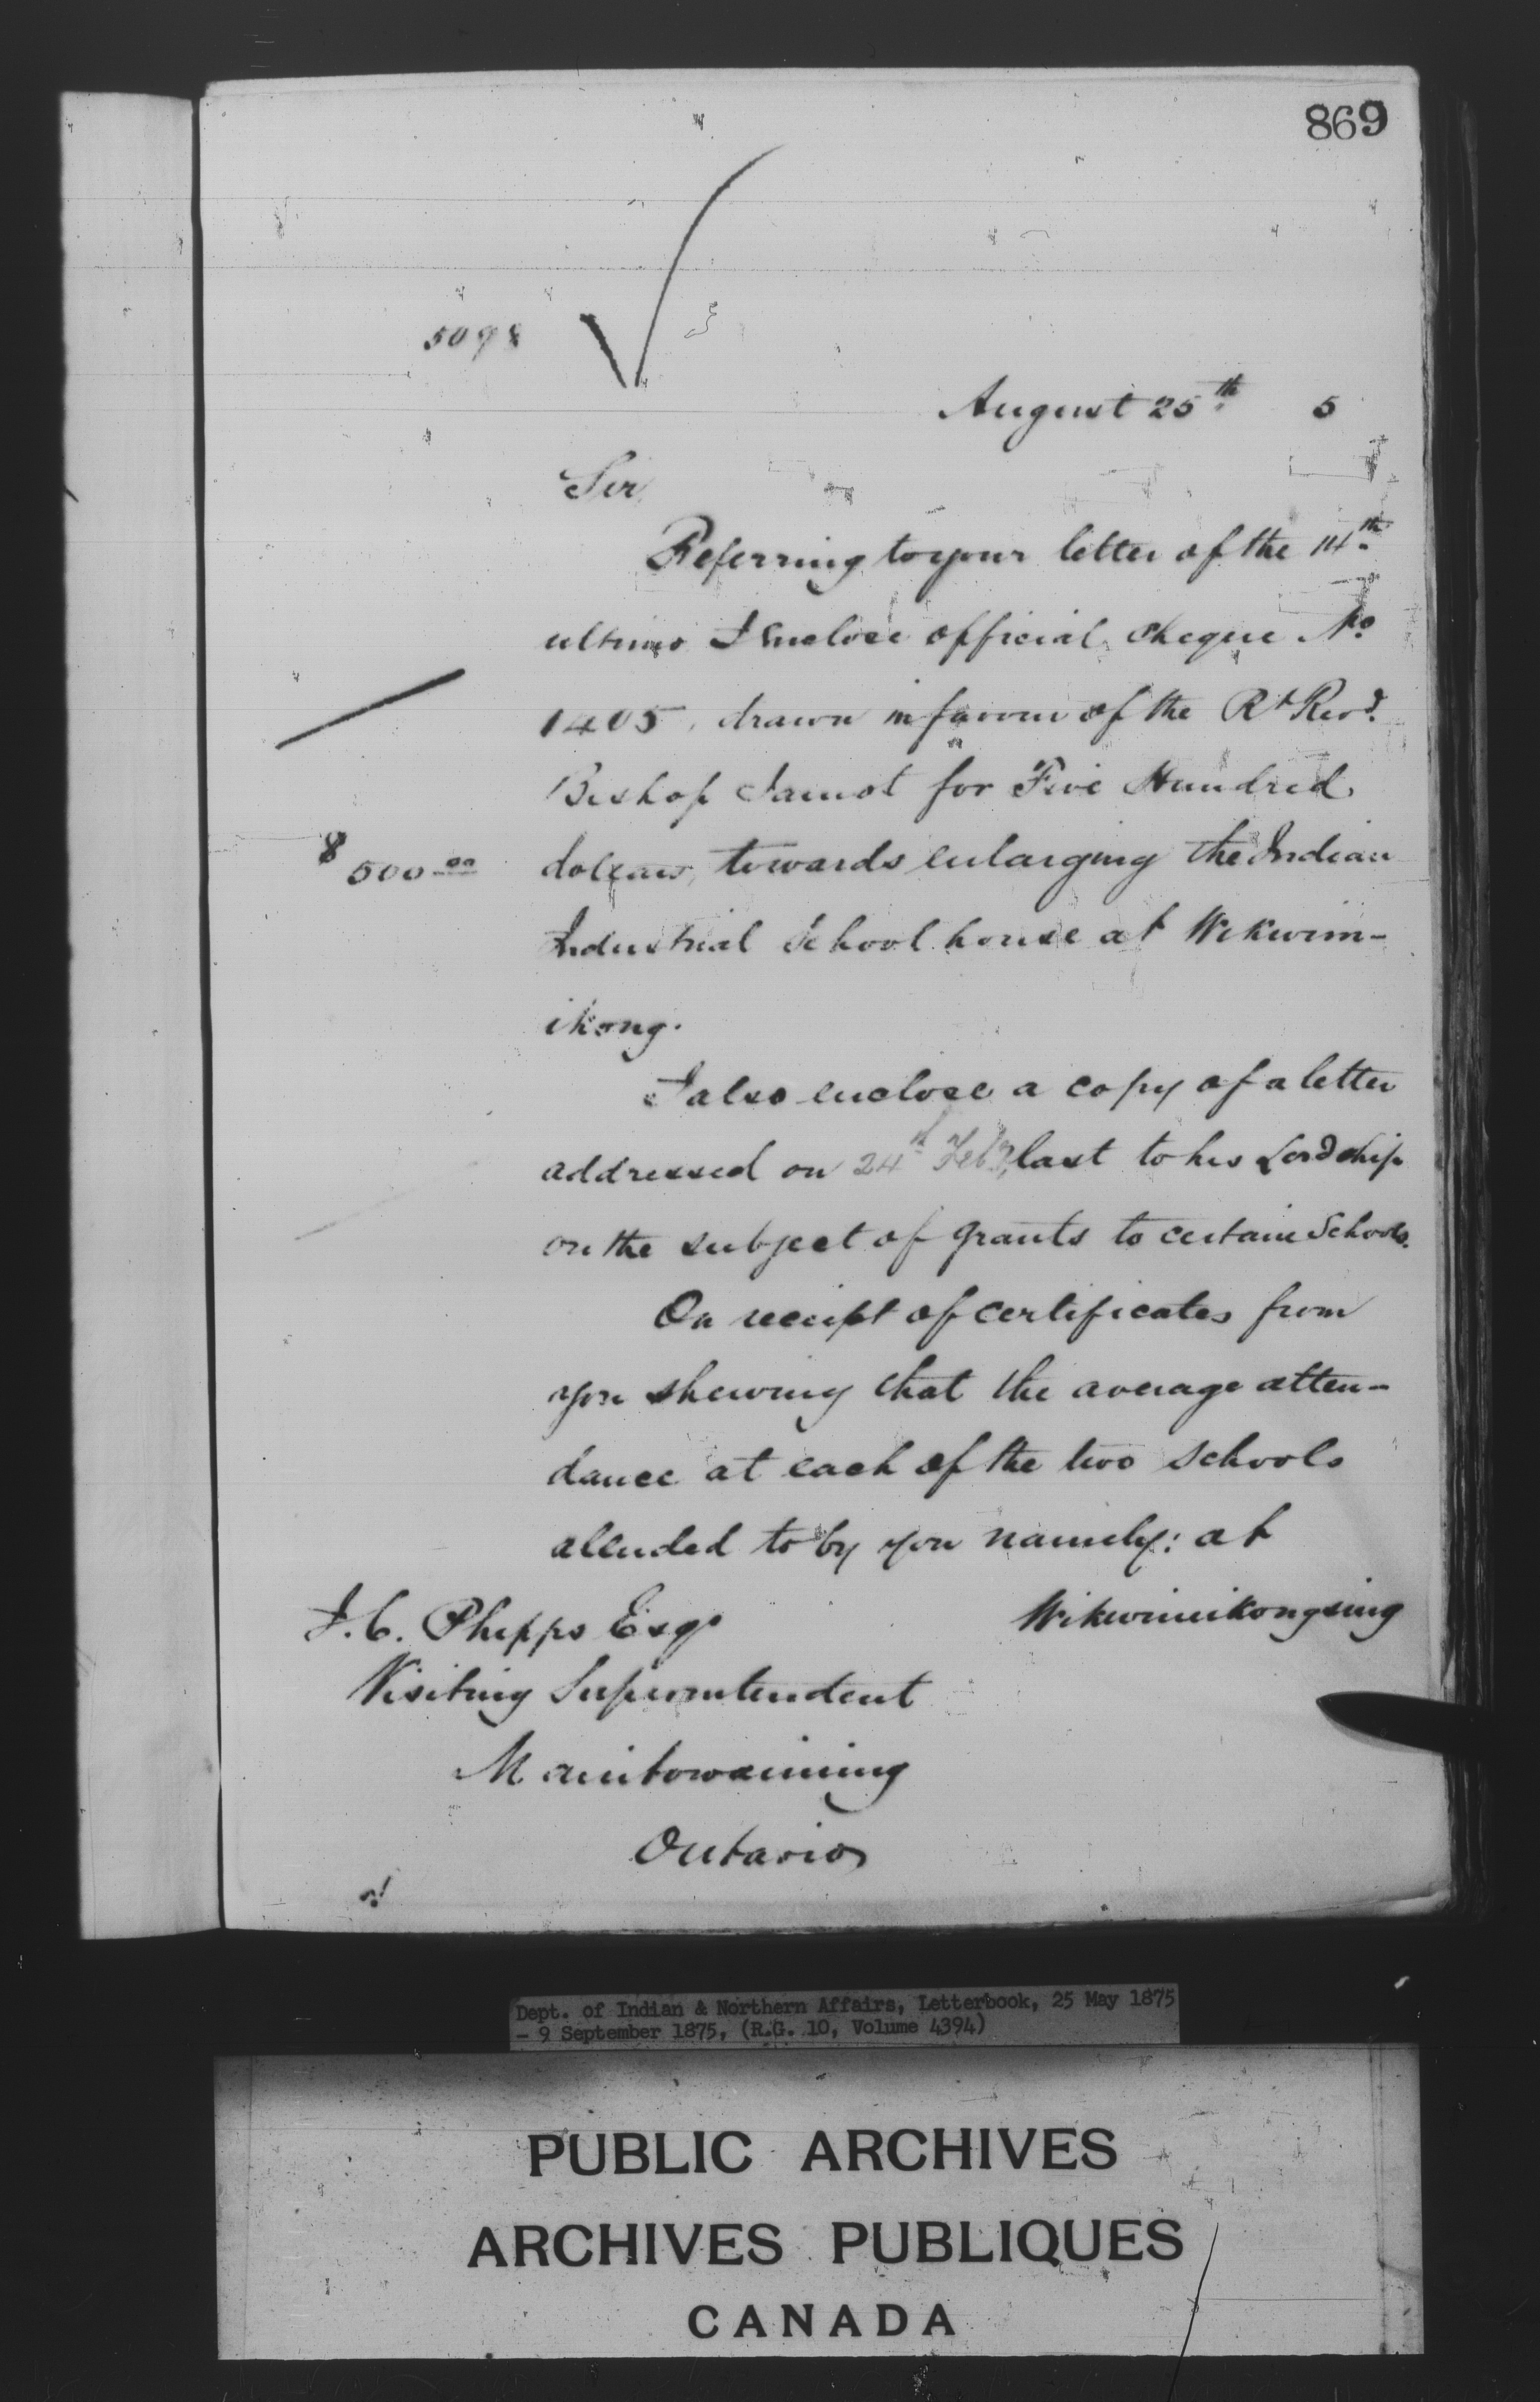 869
5098
August 25th 5
Sir
Referring to your letter of the 14th
ultimo I enclose official cheque No
1405, drawn in favour of the Rt Revd.
Bishop Jamot for Five Hundred
$500.00 dollars, towards enlarging the Indian
Industrial School house at Wikwim-
ikong.
I also enclose a copy of a letter
addressed on 24th Feby, last to his Lordship
on the subject of grants to certain Schools.
On receipt of certificates from
you shewing that the average atten-
dance at each of the two schools
alluded to by you namely: at
Wikwimikongsing
J. C. Phipps Esqr
Visiting Superintendent
Manitowaining
Ontario
Dept. of Indian & Northern Affairs, Letterbook, 25 May 1875
- 9 September 1875, (R.G. 10, Volume 4394)
PUBLIC ARCHIVES
ARCHIVES PUBLIQUES
CANADA